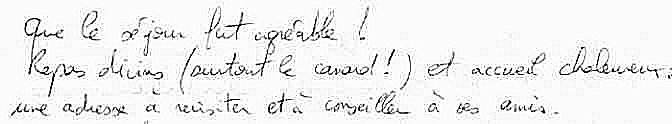 Que le séjour fut agréable !
Repas divins (surtout le canard !) et accueil chaleureux :
une adresse à revisiter et à conseiller à ses amis.